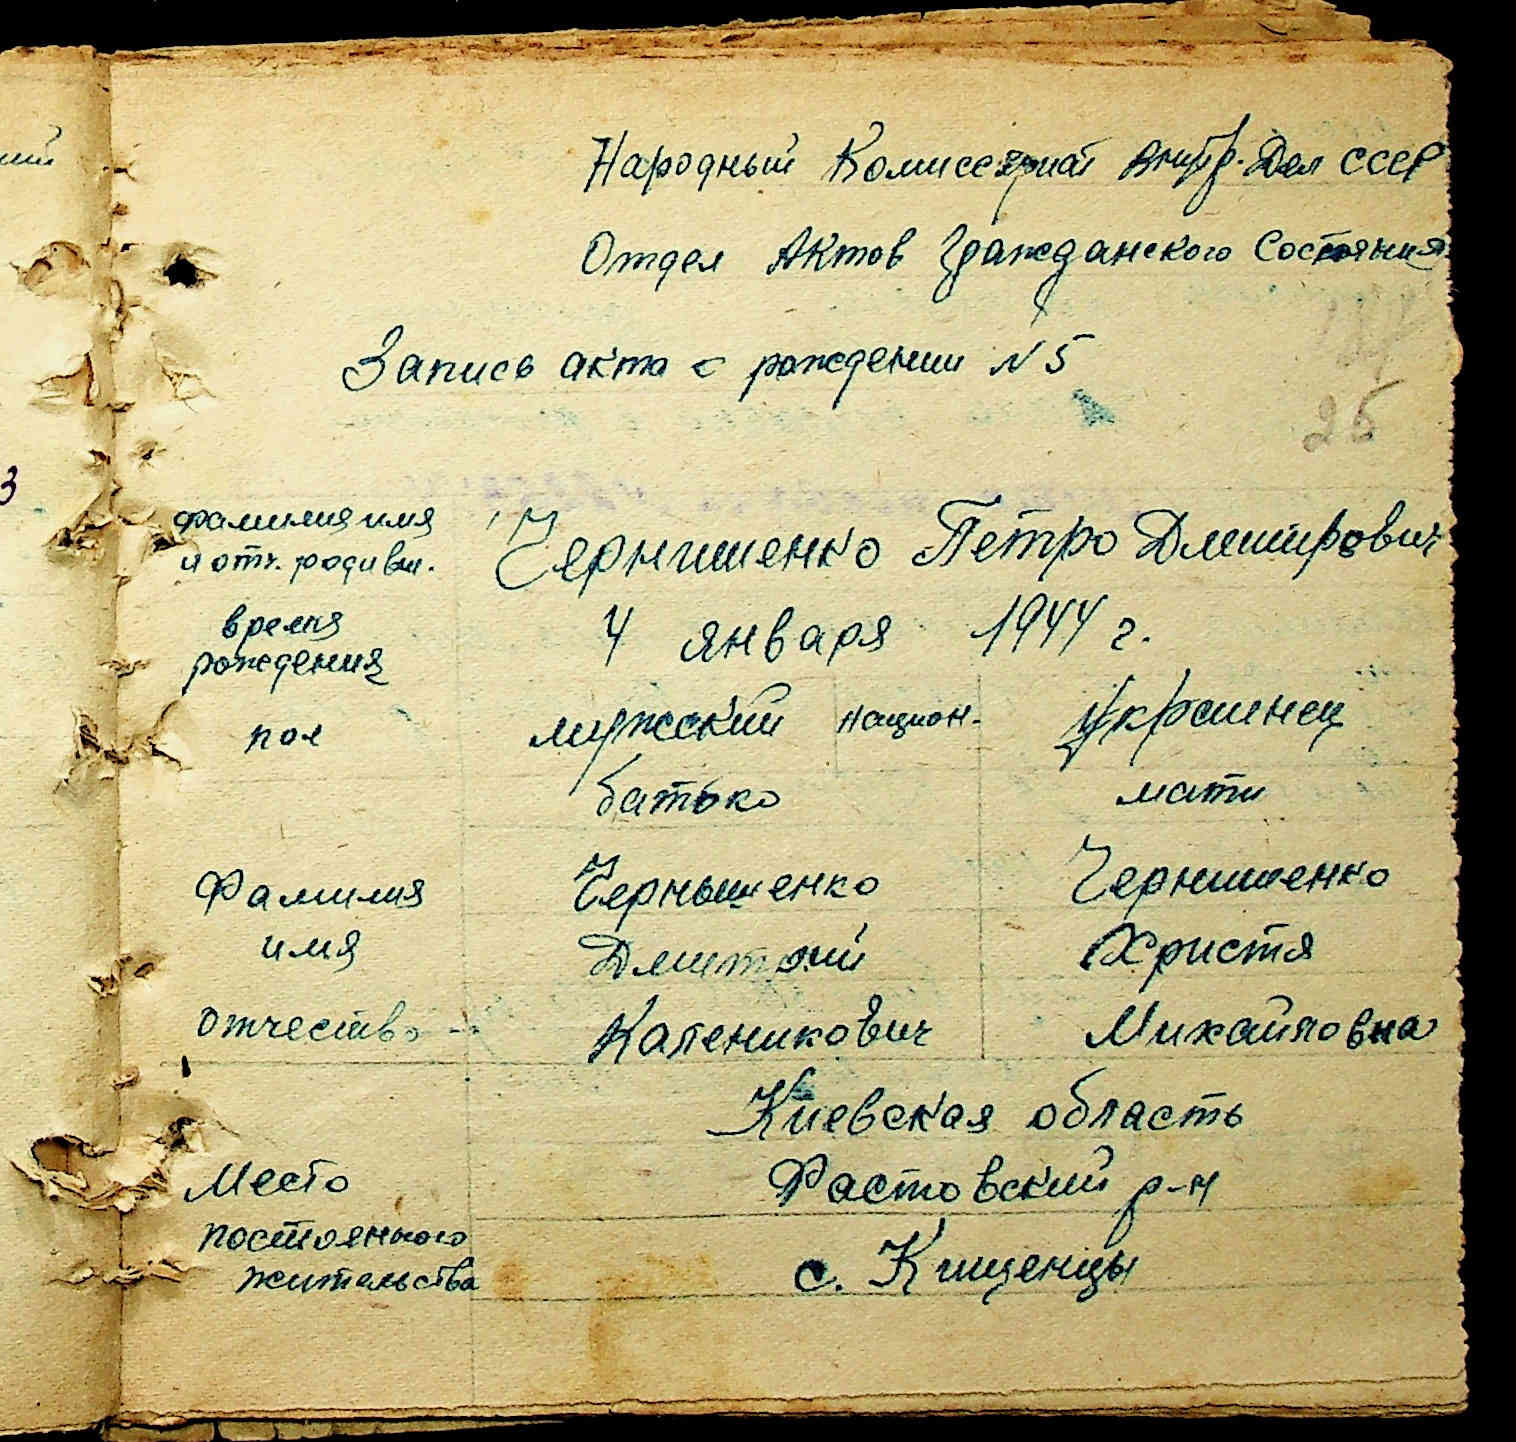 ий
3
Народный Комиссариат Внутр. Дел СССР
Отдел Актов Гражданского Состояния
Запись акта о рождении N 5
25
фамилия имя
и отч. родивш.
Чернишенко Петро Дмитрович
время
рождения
4 января 1944 г.
пол мужский национ. Украинец
батько мати
Фамилия Чернышенко Чернишенко
имя Дмитрий Христя
отчество Каленикович Михайловна
Киевская область
Место Фастовский р-н
постоянного
жительства
с. Кищенцы